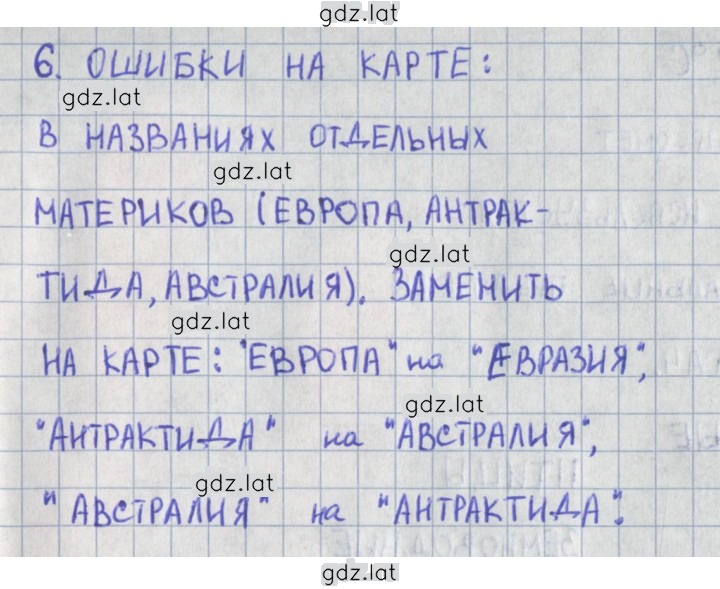 gdz.lat
6. ОШИБКИ НА КАРТЕ:
gdz.lat
В НАЗВАНИЯХ ОТДЕЛЬНЫХ
gdz.lat
МАТЕРИКОВ (ЕВРОПА, АНТРАК-
gdz.lat
ТИДА, АВСТРАЛИЯ). ЗАМЕНИТЬ
gdz.lat
НА КАРТЕ: "ЕВРОПА" на "ЕВРАЗИЯ",
gdz.lat
"АНТРАКТИДА" на "АВСТРАЛИЯ",
gdz.lat
"АВСТРАЛИЯ" на "АНТРАКТИДА".
gdz.lat